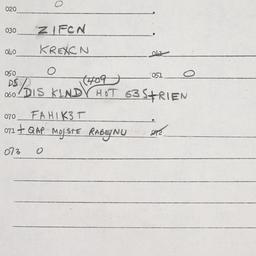 020 0
030 ZIFCN .
040 KREXCN 042
050 0 051 0
060 DIS KIND (409) HOT 63 STRIEN
070 FAHIK3T .
071 + QAP MOJSTE RABEJNU 072
073 0